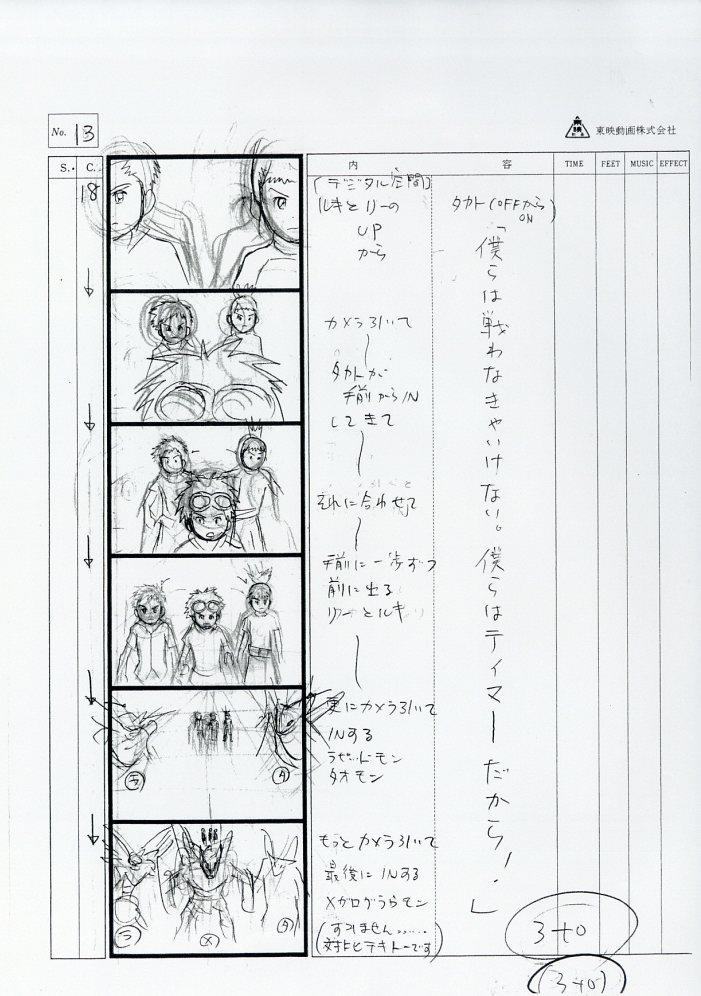 No. 13
東映動画株式会社
S. C. 内 容 TIME FEET MUSIC EFFECT
18
(デジタル空間)
ルキとリーの
UP
から
タカト(OFFから
ON)
「僕らは戦わなきゃいけない。僕らはテイマーだから!」
カメラ引いて
タカトが
手前からIN
してきて
それに合わせて
手前に一歩ずつ
前に出る
リーとルキ
更にカメラ引いて
INする
ラピッドモン
タオモン
ラ
タ
もっとカメラ引いて
最後にINする
メガログラウモン
(すいません……
対比テキトーです)
ラ
メ
タ
3+0
(3+0)